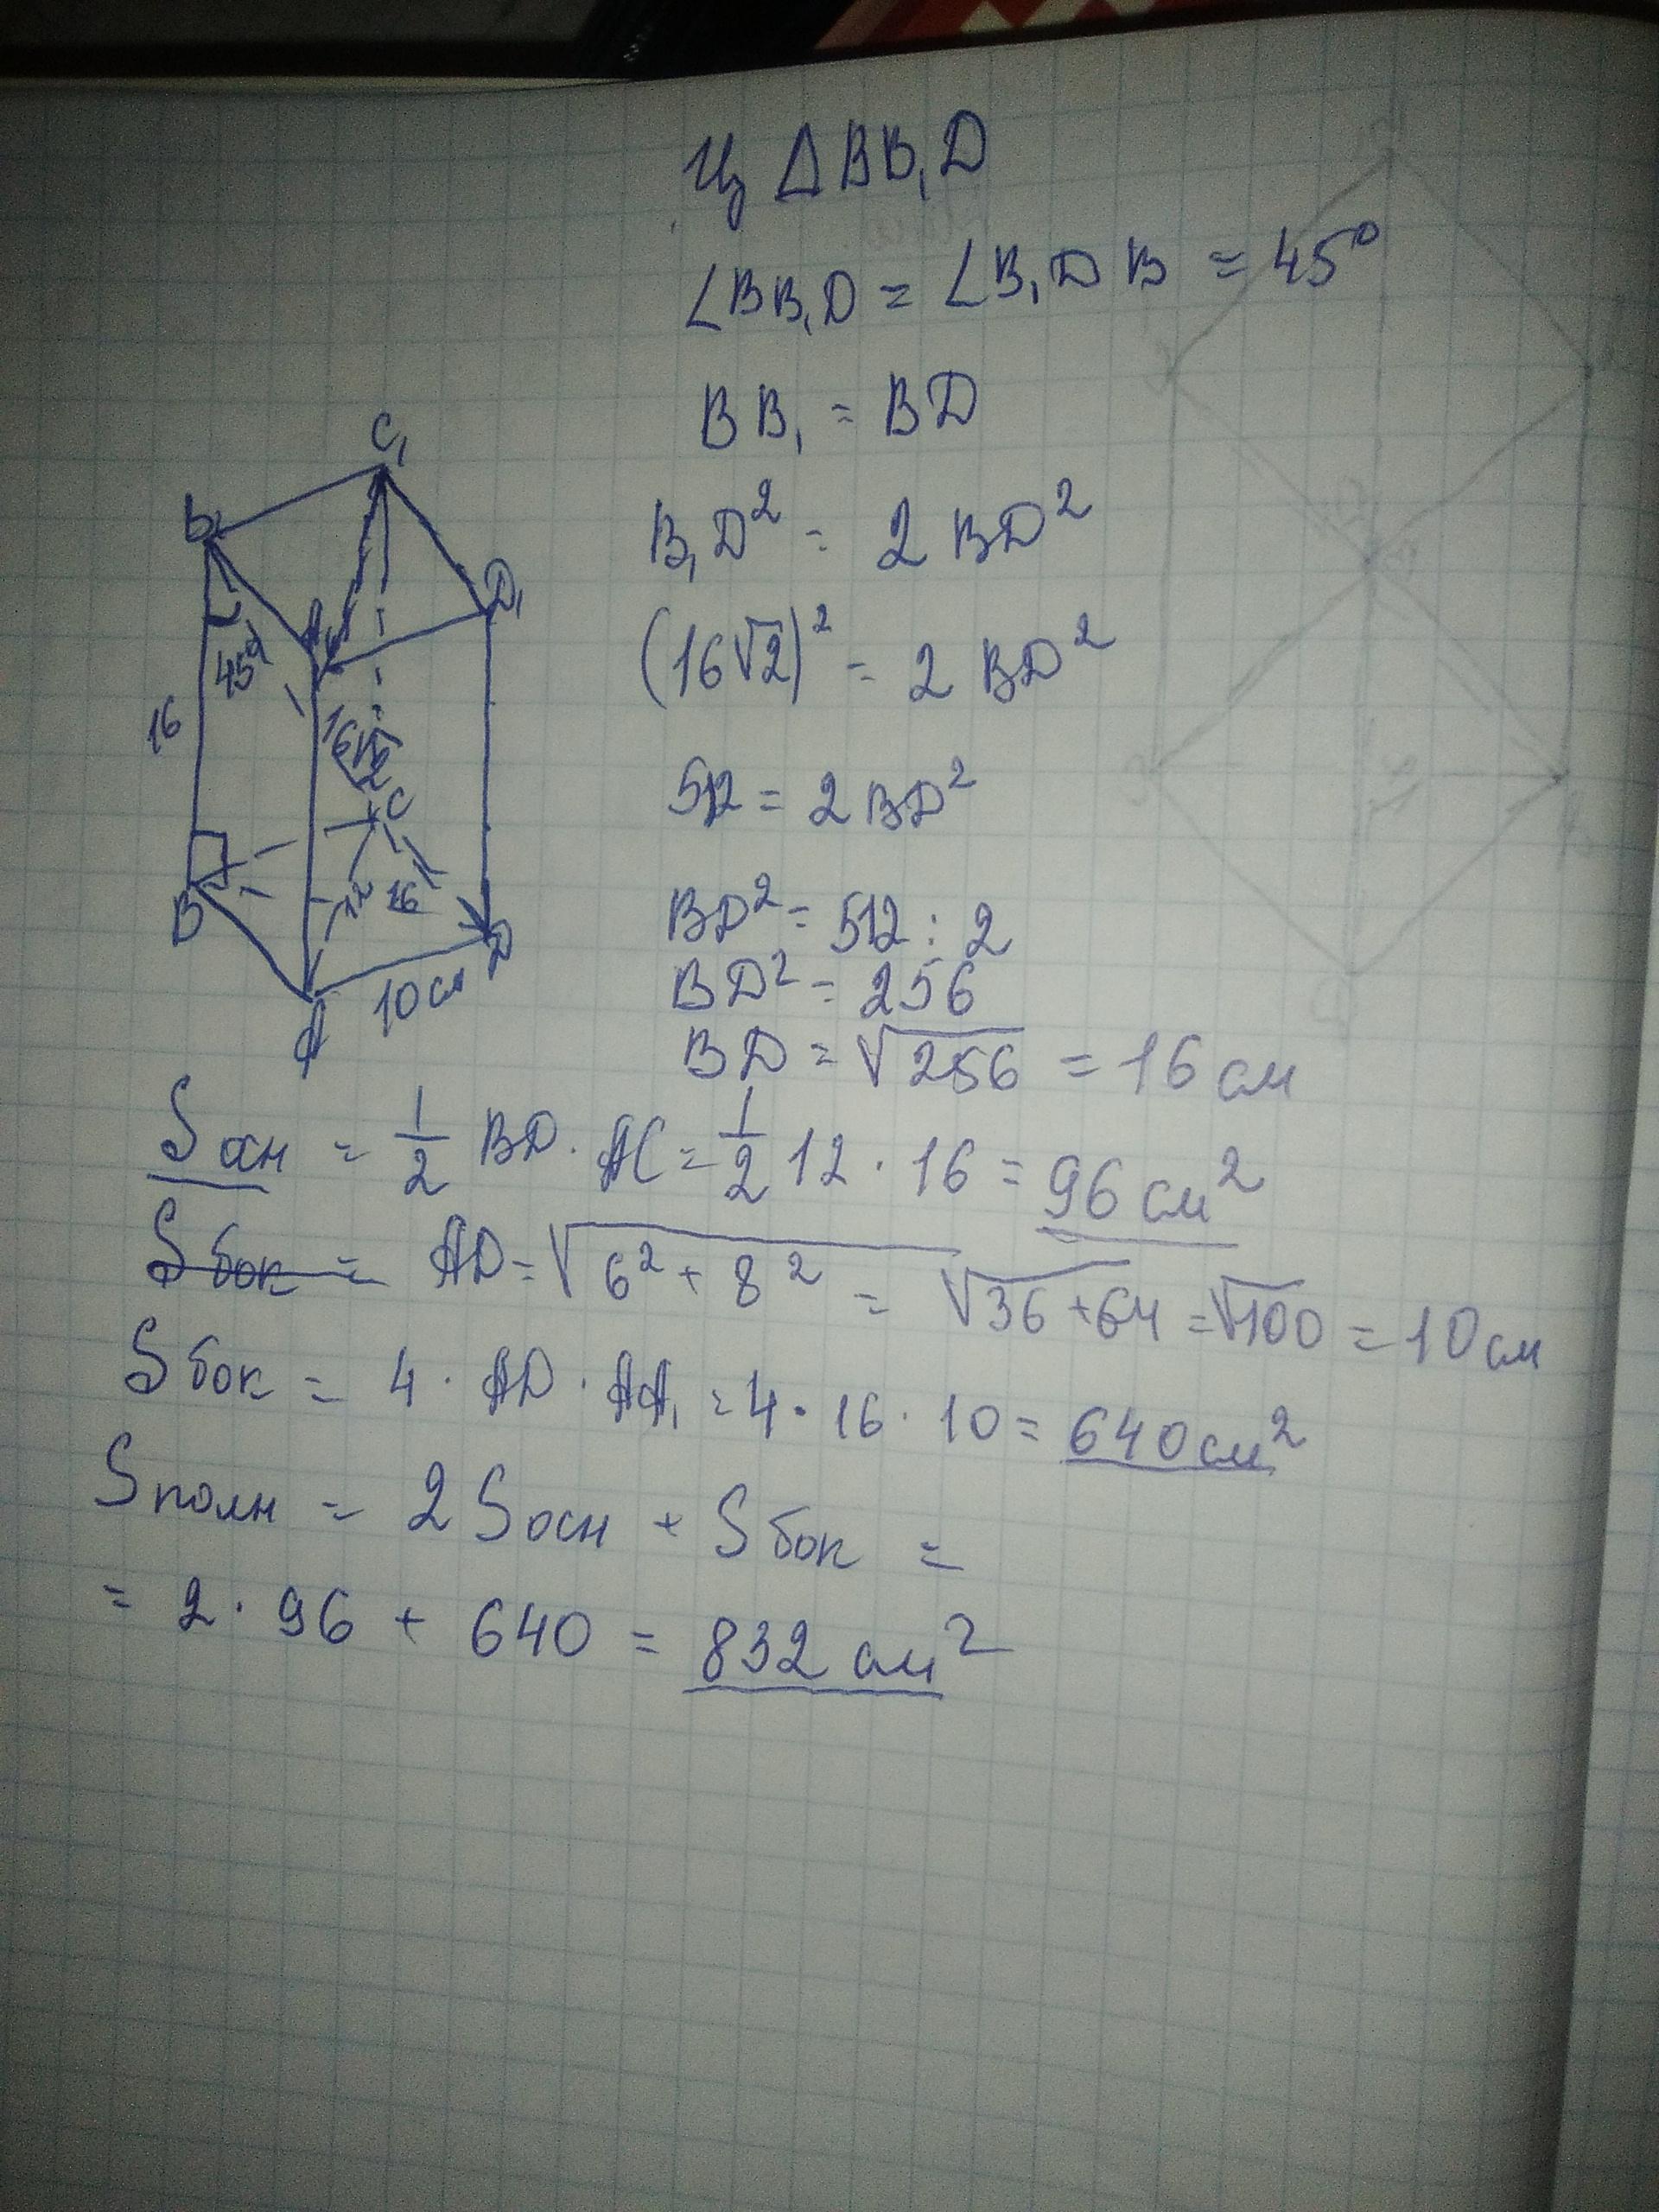 Из ΔBB₁D
∠BB₁D = ∠B₁DB = 45°
BB₁ = BD
B₁D² = 2 BD²
(16√2)² = 2 BD²
512 = 2 BD²
BD² = 512 : 2
BD² = 256
BD = √256 = 16 см
C₁
B₁
D₁
A₁
45°
16
16√2
C
12
16
B
D
10 см
A
Sосн = 1/2 BD · AC = 1/2 12 · 16 = 96 см²
Sбок = AD = √6² + 8² = √36 + 64 = √100 = 10 см
Sбок = 4 · AD · AA₁ = 4 · 16 · 10 = 640 см²
Sполн = 2 Sосн + Sбок =
= 2 · 96 + 640 = 832 см²